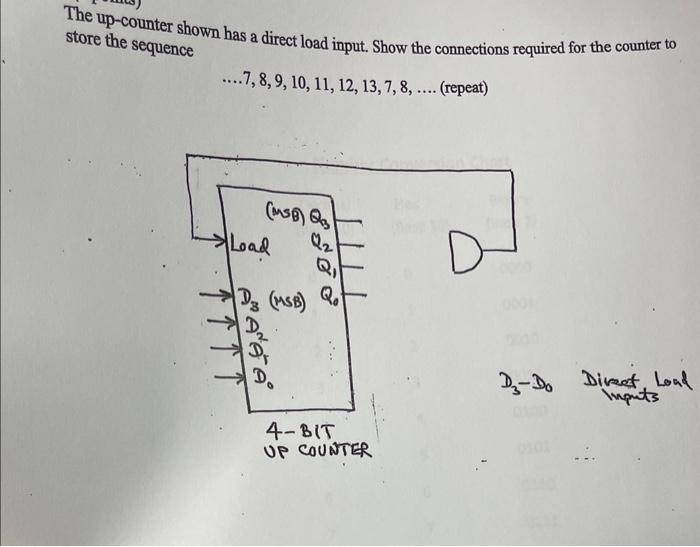 The up-counter shown has a direct load input. Show the connections required for the counter to
store the sequence
....7, 8, 9, 10, 11, 12, 13, 7, 8, .... (repeat)
(MSB) Q3
Load Q2
Q1
D3 (MSB) Q0
D2
D1
D0
D3-D0 Direct Load
Inputs
4-BIT
UP COUNTER